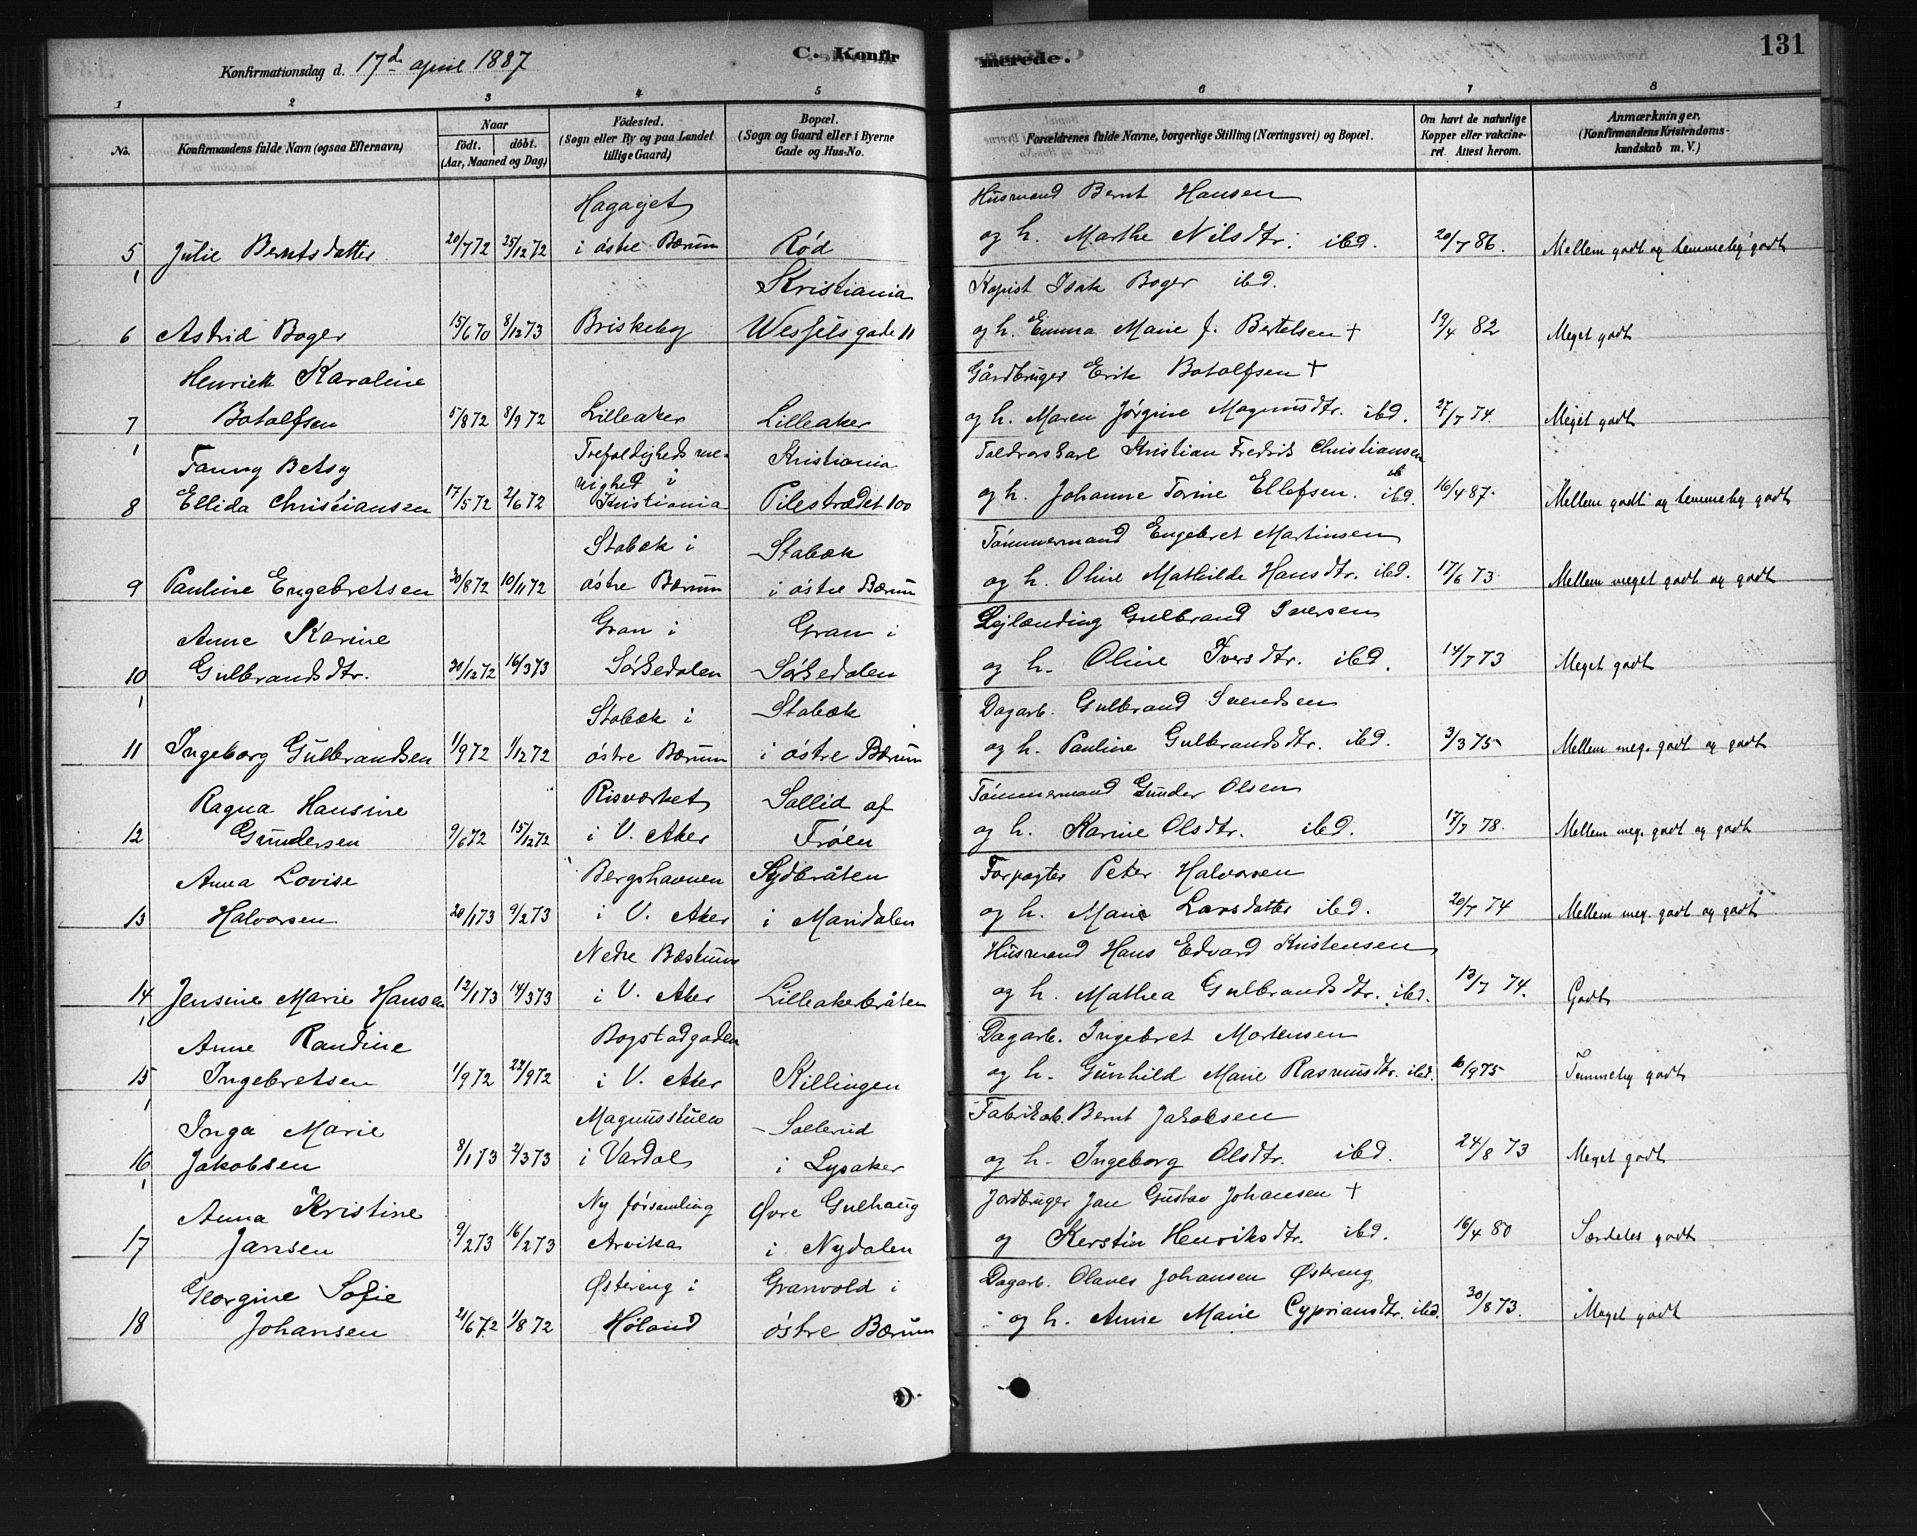 131
Konfirmationsdag d. 17d april 1887
C. Konfirmerede.
1 2 3 4 5 6 7 8
No. Konfirmandens fulde Navn (ogsaa Efternavn) Naar født. døbt. (Aar, Maaned og Dag) Fødested. (Sogn eller By og paa Landet tillige Gaard) Bopæl. (Sogn og Gaard eller i Byerne Gade og Hus-No. Forældrenes fulde Navne, borgerlige Stilling (Næringsvei) og Bopæl. Om havt de naturlige Kopper eller vakcineret. Attest herom. Anmærkninger. (Konfirmandens Kristendomskundskab m. V.)
Hagajet Husmand Bernt Hansen
5 Julie Berntsdatter 20/7 72 25/12 72 i østre Bærum Rød og h. Marthe Nilsdtr. ibd. 20/7 86. Mellem godt og temmelig godt
Kristiania Kopist Isak Boger ibd.
6 Astrid Boger 15/6 70 8/12 73 Briskeby Wessels gade 11 og h. Emma Marie J. Bertelsen + 19/4 82 Meget godt
Henriette Karoline Gårdbruger Erik Botolfsen +
7 Botolfsen 5/8 72 8/9 72 Lilleaker Lilleaker og h. Maren Jørgine Magnusdtr. ibd. 27/7 74. Meget godt
Fanny Betsy Trefoldigheds me- Kristiania Toldrorskarl Kristian Fredrik Christiansen
nighed i
8 Ellida Christiansen 17/5 72 2/6 72 Kristiania Pilestrædet 100 og h. Johanne Torine Ellefsen. ibd. 16/4 87. Mellem godt og temmelig godt
Stabæk i Stabæk Tømmermand Engebret Martinsen
9 Pauline Engebretsen 30/8 72 10/11 72 østre Bærum i østre Bærum og h. Oline Mathilde Hansdtr. ibd. 17/6 73 Mellem meget godt og godt
Anne Karine Gran i Gran i Lejlænding Gulbrand Iversen
10 Gulbrandsdtr. 30/12 72 16/3 73 Sørkedalen Sørkedalen og h. Oline Iversdtr. ibd. 14/7 73 Meget godt
Stabæk i Stabæk Dagarb. Gulbrand Svendsen
11 Ingeborg Gulbrandsen 1/9 72 1/12 72 østre Bærum i østre Bærum og h. Pauline Gulbrandsdtr. ibd. 3/3 75 Mellem meg. godt og godt
Ragna Hansine Risværket Sollid af Tømmermand Gunder Olsen
12 Gundersen 9/6 72 15/12 72 i V. Aker Frøen og h. Karine Olsdtr. ibd. 17/7 78. Mellem meg. godt og godt
Anna Lovise Bergshavnen Sydbråten Forpagter Peter Halvorsen
13 Halvorsen 20/1 73 9/2 73 i V. Aker i Maridalen og h. Marie Larsdatter ibd. 20/7 74 Mellem meg. godt og godt
Nedre Bæstum Husmand Hans Edvard Kristensen
14 Jensine Marie Hansen 12/1 73 14/3 73 i V. Aker Lilleakerbråten og h. Mathea Gulbrandsdtr. ibd. 13/7 74. Godt
Anne Randine Bogstadgaden Dagarb. Ingebret Mortensen
15 Ingebretsen 1/9 72 22/9 72 i V. Aker Killingen og h. Gunhild Marie Rasmusdtr. ibd. 10/9 75 Temmelig godt
Inga Marie Magnusstuen Sollerud Fabrikarb. Bernt Jakobsen
16 Jakobsen 8/1 73 2/3 73 i Vardal i Lysaker og h. Ingeborg Olsdtr. ibd. 24/8 73 Meget godt
Anna Kristine Ny forsamling Øvre Gulhaug Jordbruger Jan Gustav Johansen +
17 Jansen 9/2 73 16/2 73 Arvika i Nydalen og Kerstin Henriksdtr. ibd. 16/4 80 Særdeles godt
Georgine Sofie Østereng i Granvold i Dagarb. Olaves Johansen Østreng
18 Johansen 21/6 72 1/8 72 Høland østre Bærum og h. Anne Marie Cypriansdtr. ibd. 30/8 73. Meget godt